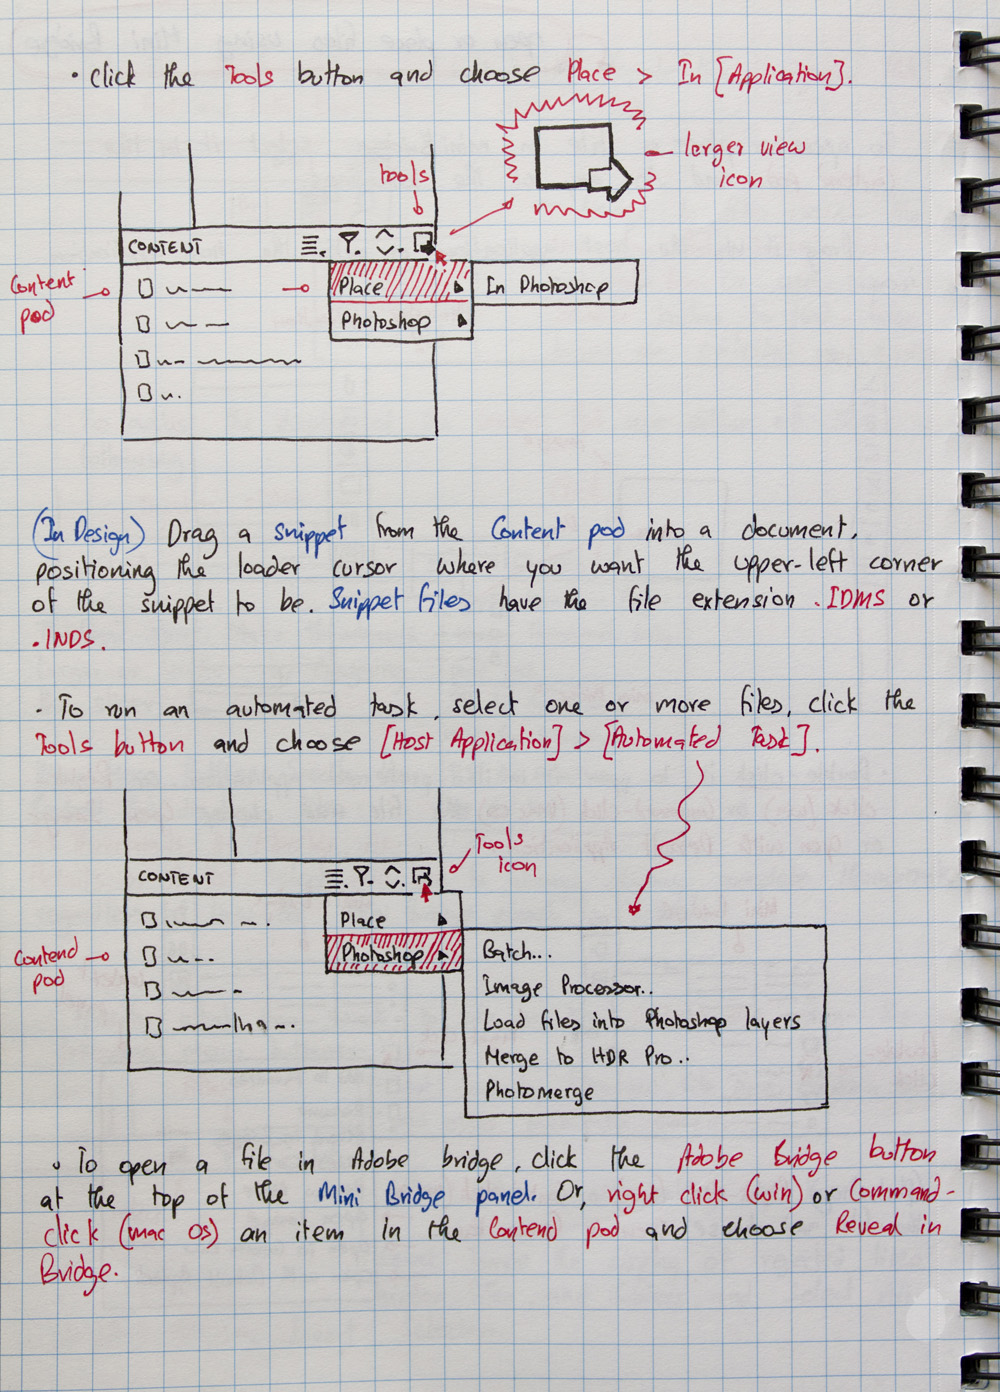 • Click the Tools button and choose Place > In [Application].
larger view
icon
tools
CONTENT
Content
pod
Place
In Photoshop
Photoshop
(In Design) Drag a snippet from the Content pod into a document,
positioning the loader cursor where you want the upper-left corner
of the snippet to be. Snippet files have the file extension .IDMS or
.INDS.
• To run an automated task, select one or more files, click the
Tools button and choose [Host Application] > [Automated Task].
Tools
icon
CONTENT
Place
Contend
pod
Photoshop
Batch...
Image Processor..
Load files into Photoshop layers
Merge to HDR Pro..
Photomerge
• To open a file in Adobe bridge, click the Adobe Bridge button
at the top of the Mini Bridge panel. Or, right click (win) or Command-
click (mac Os) an item in the Contend pod and choose Reveal in
Bridge.